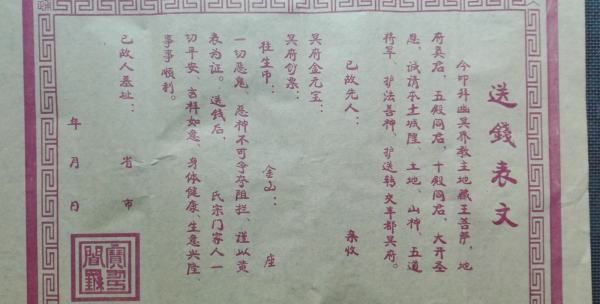 送錢表文
今叩拜幽冥界教主地藏王菩萨，地
府冥君，五殿阎君，十殿阎君，大开圣
恩，诚请本土城隍，土地，山神，五道
将军，护法善神，护送转交丰都冥府。
已故先人： 亲收
冥府金元宝：
冥府钞票：
往生币： 金山： 座
一切恶鬼，恶神不可争夺阻拦，谨以黄
表为证。送钱后， 氏宗门家人一
切平安、吉祥如意、身体健康、生意兴隆、
事事顺利。
已故人墓址： 省 市
年 月 日